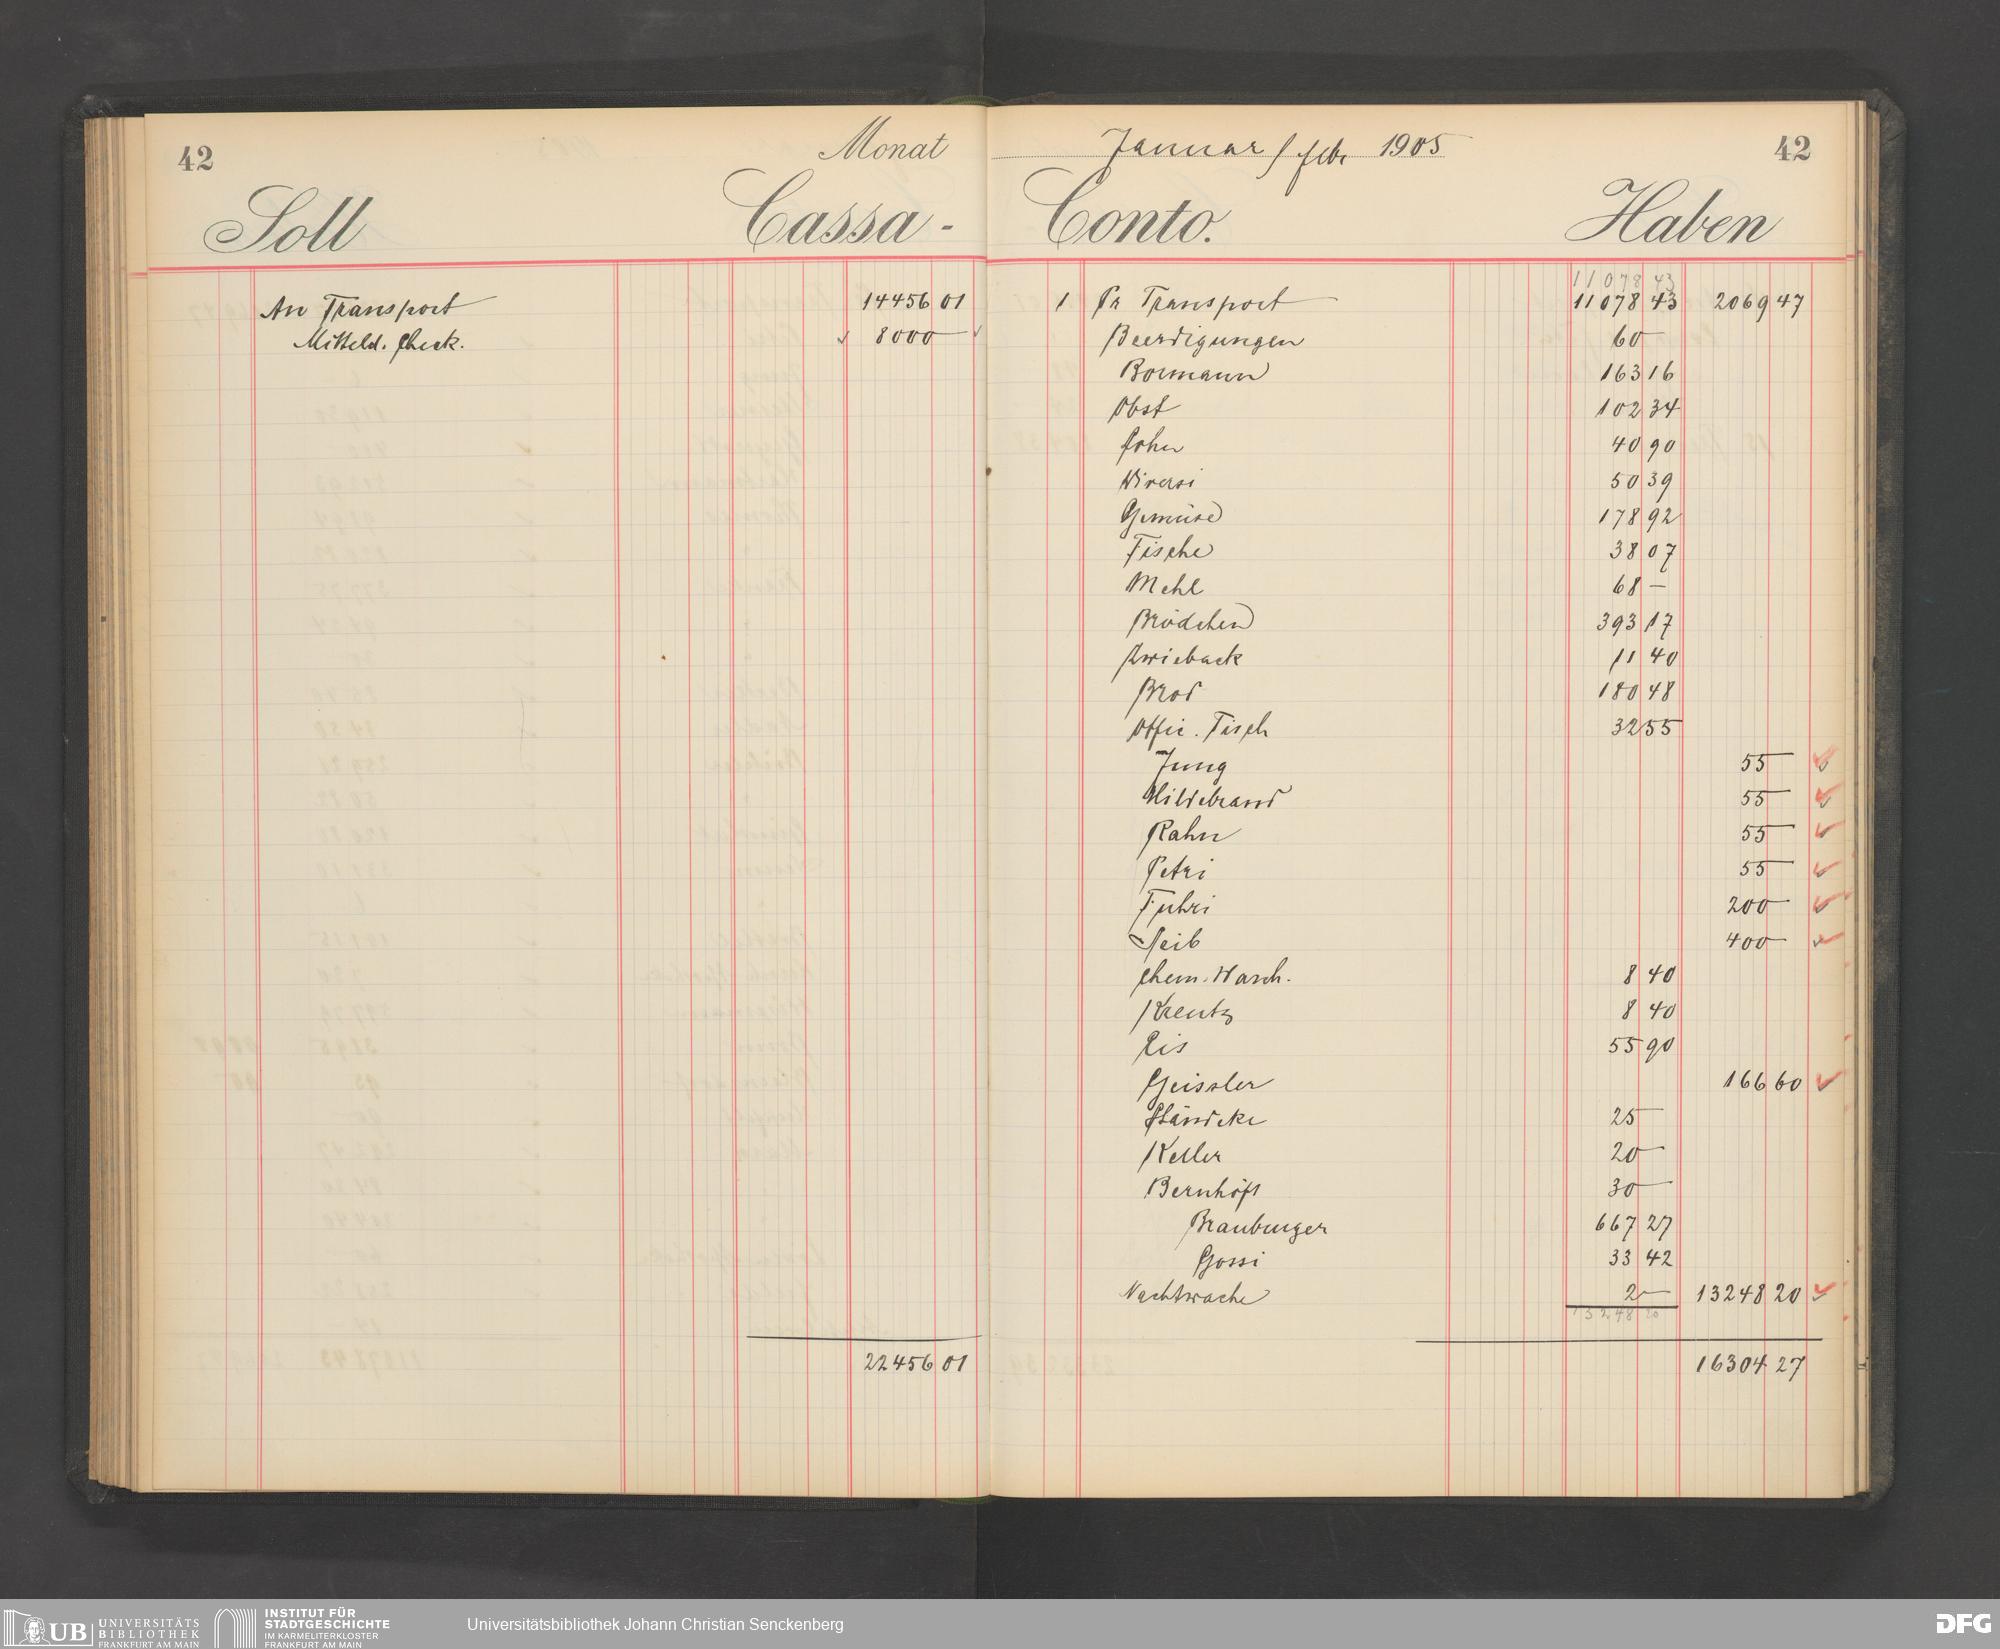 42
Monat
Soll
Cassa -
An Transport 14456 01
Mitteld. Check. 8000 —
22456 01
Januar / Febr 1905
42
Conto.
Haben
11078 43
1 Pr Transport 11078 43 2069 47
Beerdigungen 60 —
Bormann 163 16
Obst 102 34
Cohn 40 90
Diversi 50 39
Gemüse 178 92
Fische 38 07
Mehl 68 —
Brödchen 393 17
Zwieback 11 40
Brod 180 48
Offic. Tisch 32 55
Jung 55 —
Hildebrand 55 —
Rahn 55 —
Petri 55 —
Fuhri 200 —
Seib 400 —
Chem. Wasch. 8 40
Kreutz 8 40
Eis 55 90
Geissler 166 60
25 —
Keller 20 —
Bernhöft 30 —
Braubunger 667 27
Gossi 33 42
Nachtwache 2 — 13248 20
13248 20
16304 27
UB UNIVERSITÄTS
BIBLIOTHEK
FRANKFURT AM MAIN
INSTITUT FÜR
STADTGESCHICHTE
IM KARMELITERKLOSTER
FRANKFURT AM MAIN
Universitätsbibliothek Johann Christian Senckenberg
DFG